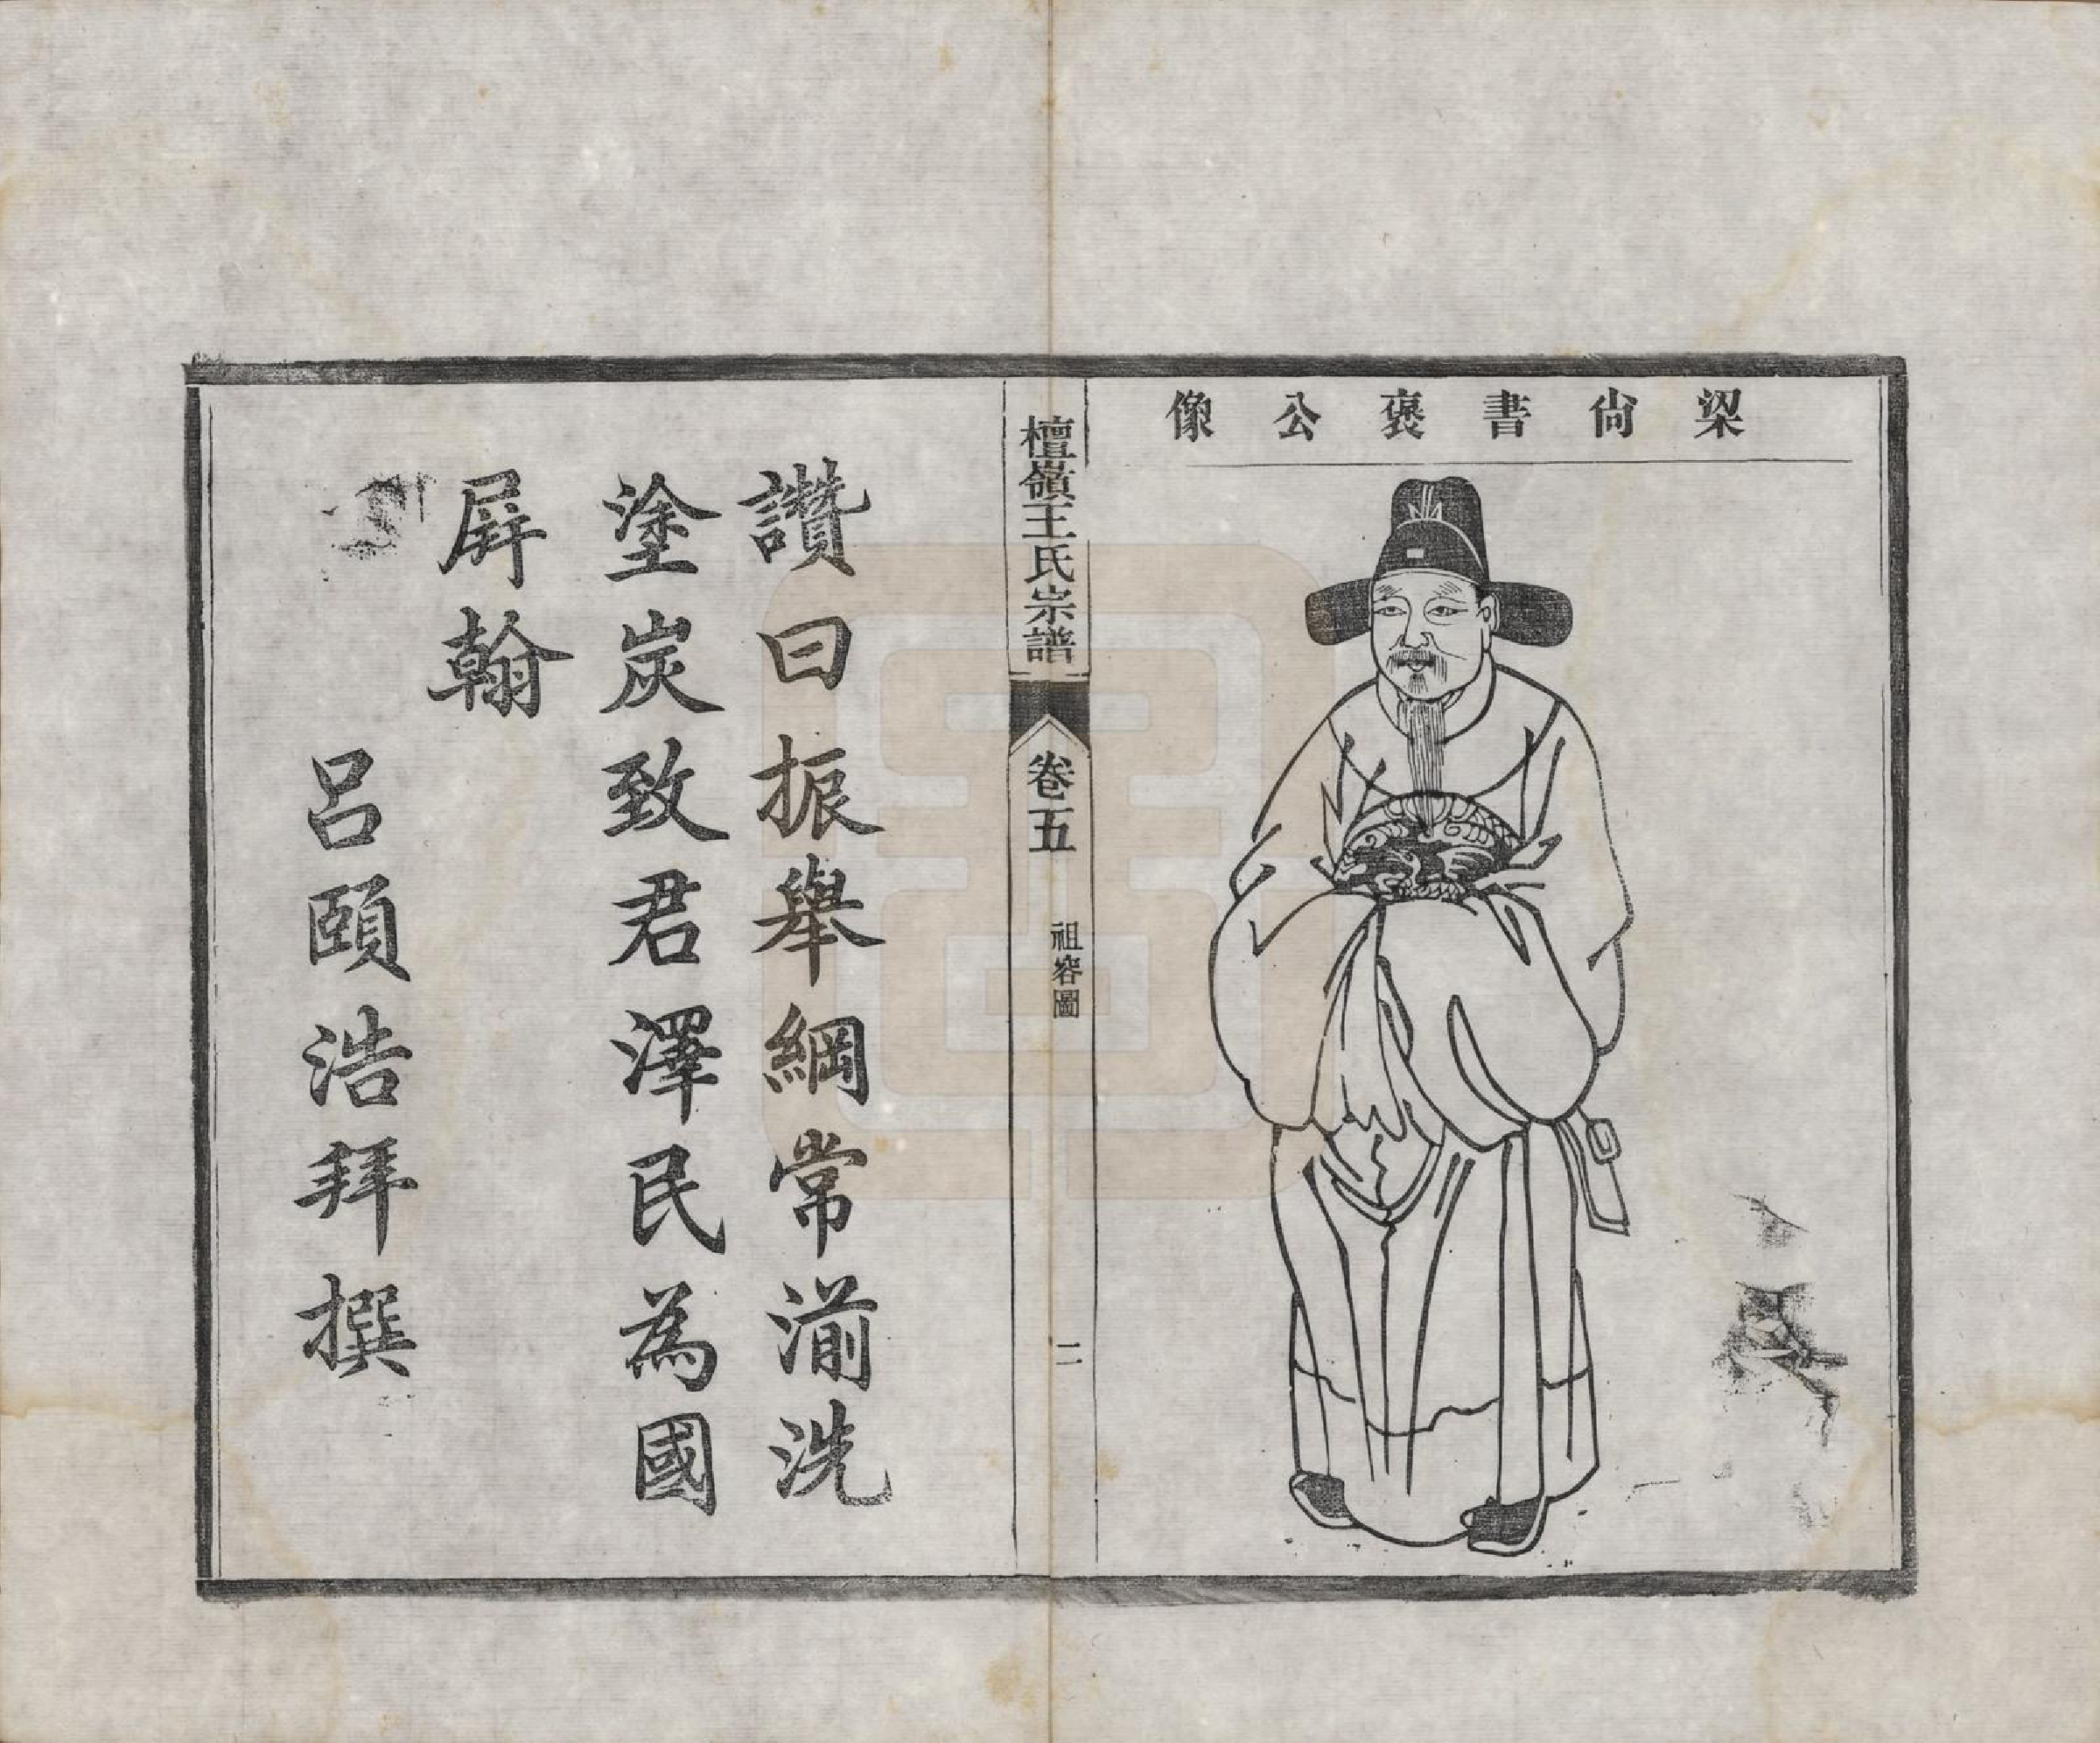 梁尙書褒公像
檀嶺王氏宗譜
卷五
祖容圖
二
讚曰振舉綱常湔洗
塗炭致君澤民為國
屏翰
呂頤浩拜撰